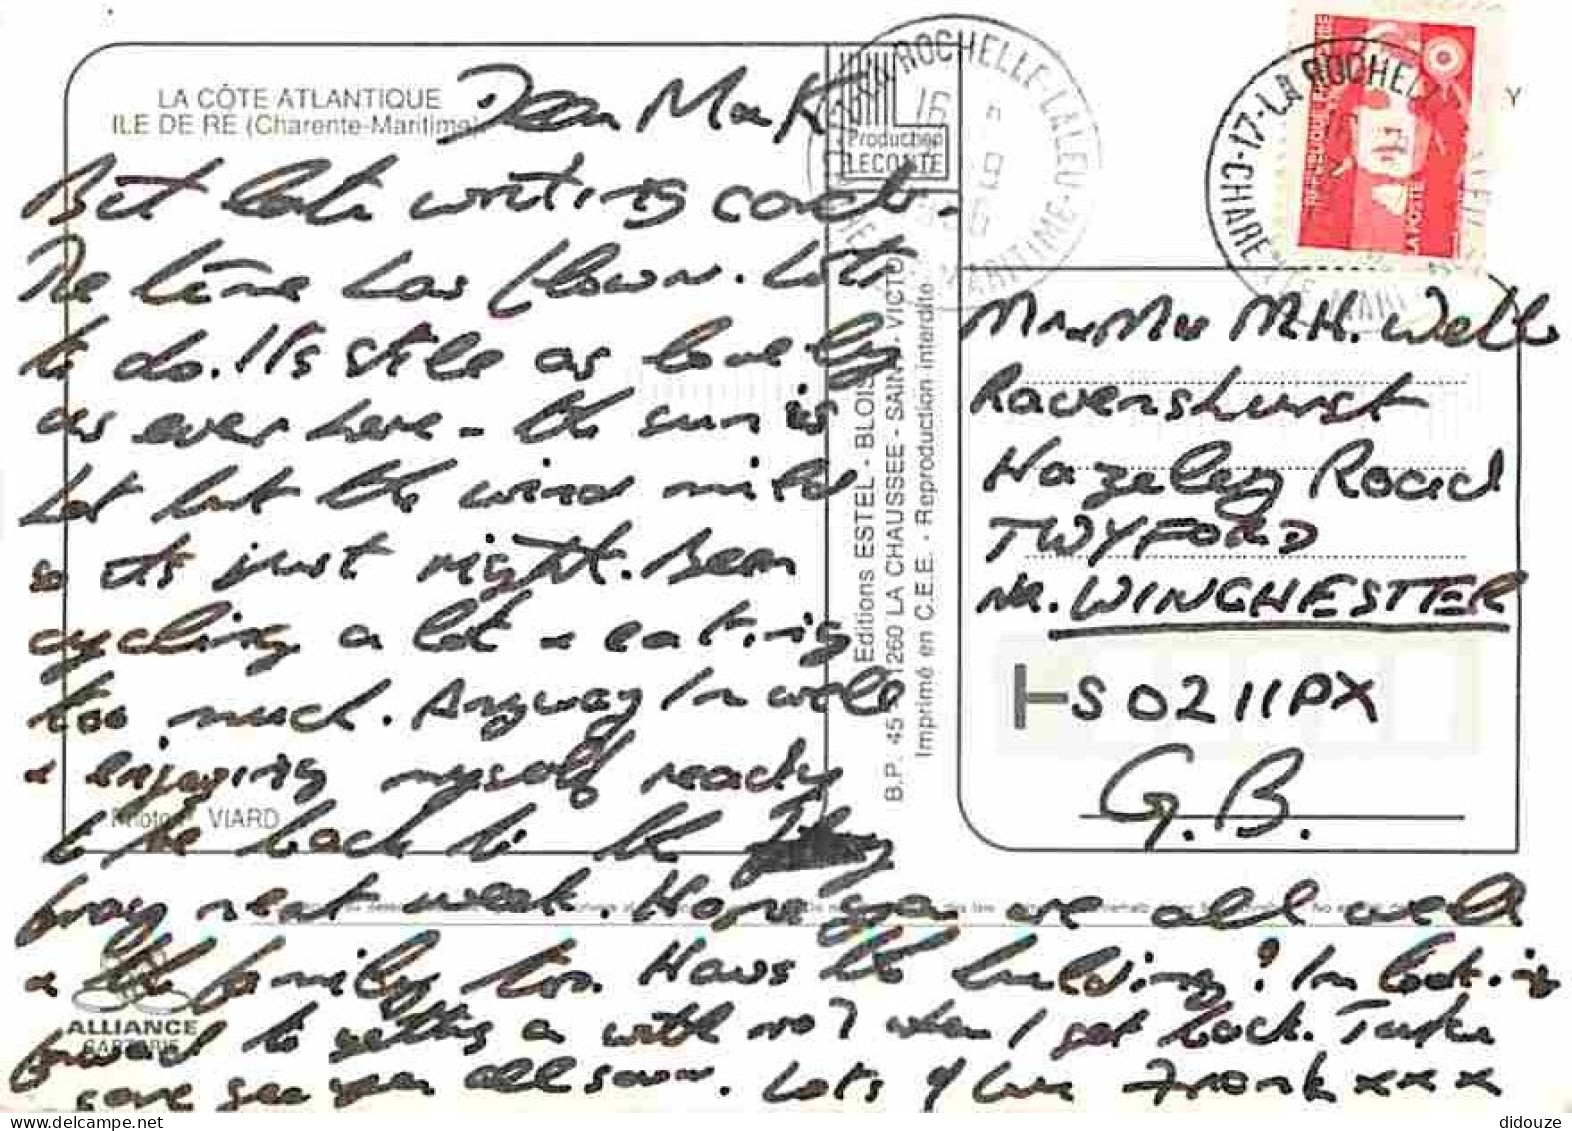 LA CÔTE ATLANTIQUE
ILE DE RÉ (Charente-Maritime)
Dear Mark
Bit late writing cards -
The time has flown. Lots
to do. It's still as lovely
as ever here - the sun is
hot but the wind mild
so its just right. Been
cycling a lot & eating
too much. Anyway I'm well
& enjoying myself ready
to be back to the
fray next week. Hope you are all well
& the family too. Hows the building? I'm looking
forward to getting on with no 7 when I get back. Take
care see you all soon. Lots of love Frank xxx
Photos VIARD
ALLIANCE
CARTERIE
Production
LECONTE
Editions ESTEL - BLOIS
B.P. 45 - 41260 LA CHAUSSÉE - SAINT - VICTOR
Imprimé en C.E.E. - Reproduction interdite
LA ROCHELLE-LALEU
MARITIME
16
17-LA ROCHELLE
LA POSTE
Mr & Mrs M.H. Wells
Ravenshurst
Hazeley Road
TWYFORD
Nr. WINCHESTER
SO21 1PX
G.B.
didouze